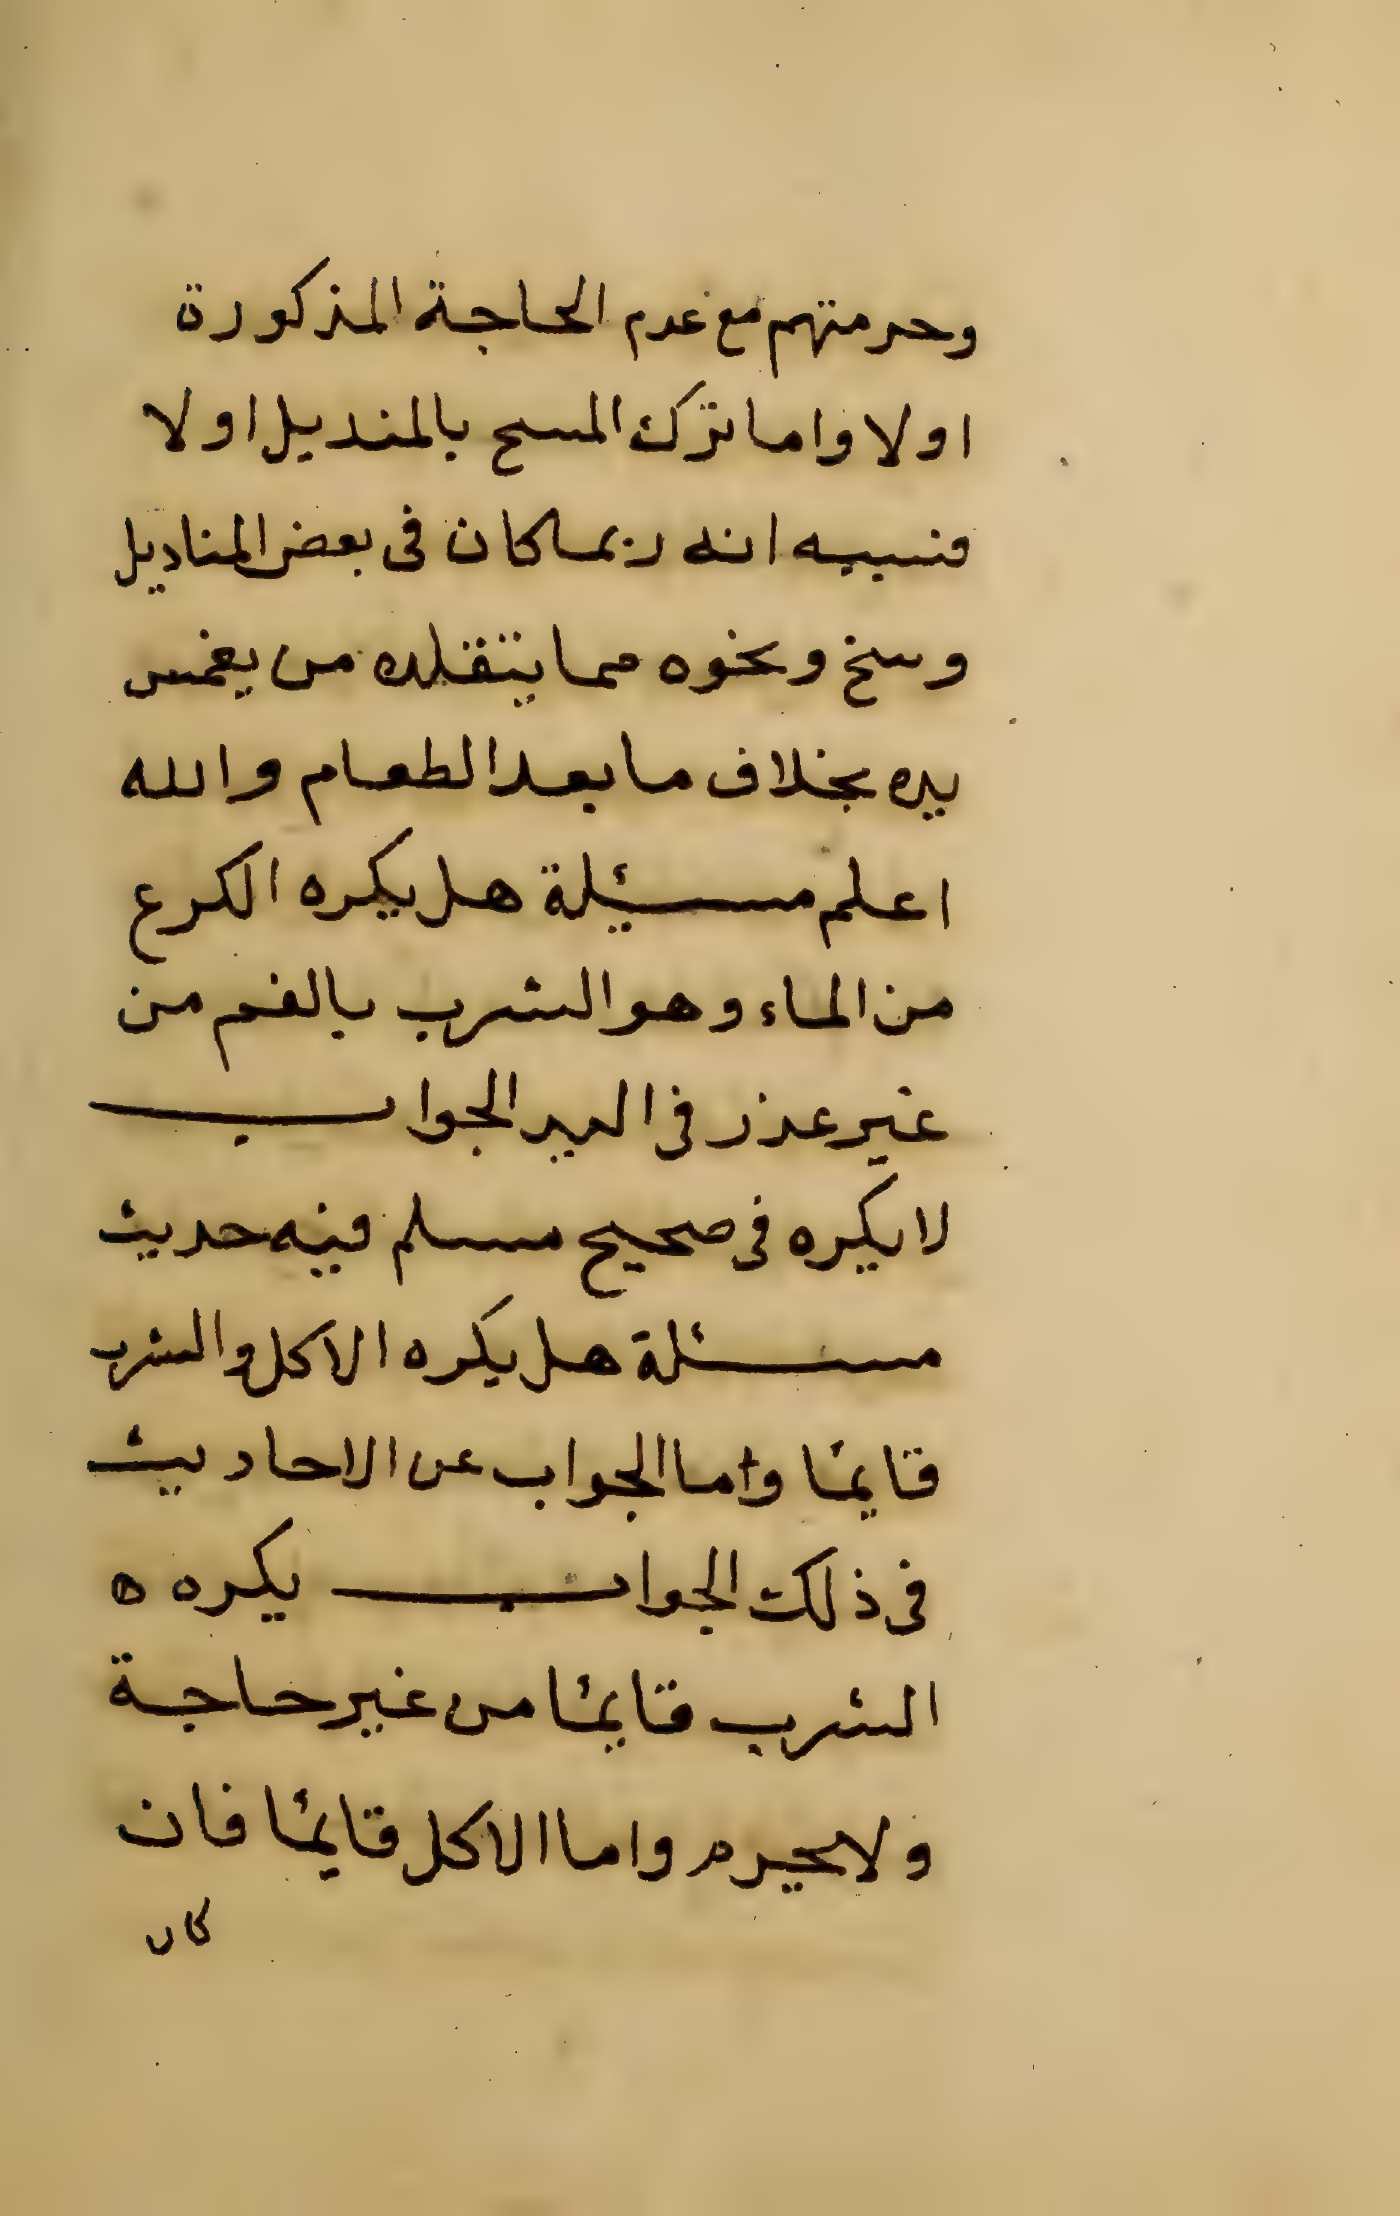 وحرمتهم مع عدم الحاجة المذكورة
اولا واما ترك المسح بالمنديل اولا
فسببه انه ربما كان فى بعض المناديل
وسخ ونخوه مما ينتقل من يغمس
يده بخلاف ما بعد الطعام والله
اعلم مسئلة هل يكره الكرع
من الماء وهو الشرب بالفم من
غير عذر فى اليد الجواب
لا يكره فى صحيح مسلم فيه حديث
مسئلة هل يكره الاكل والشرب
قايمًا واما الجواب عن الاحاديث
فى ذلك الجواب يكره ه
الشرب قايمًا من غير حاجة
ولا يحرم واما الاكل قايمًا فان
كان